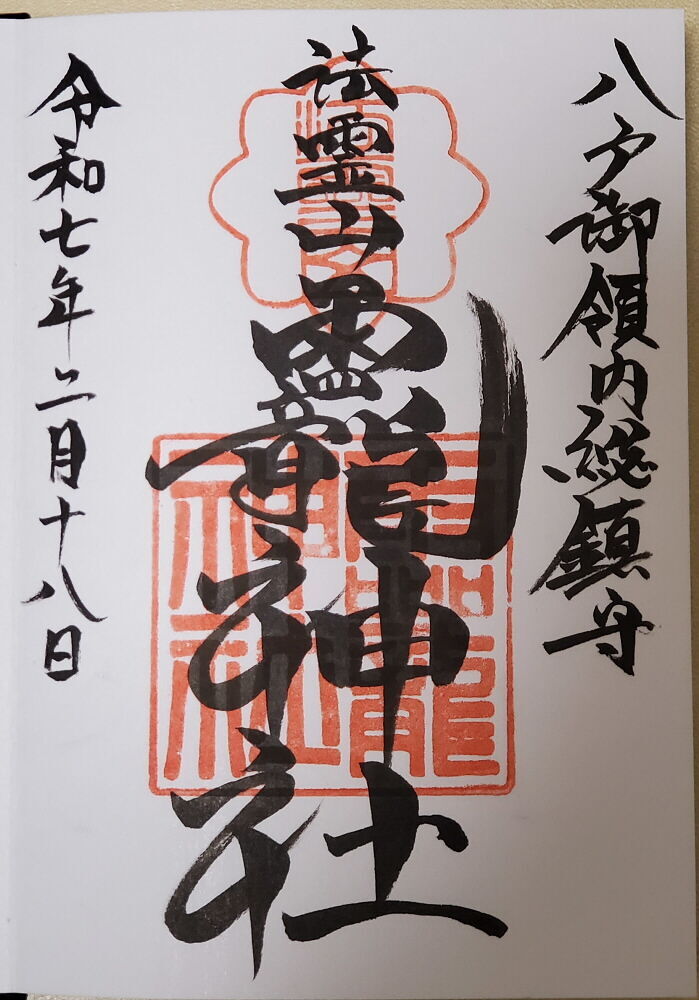 八戸御領内総鎮守
法霊山
龗神社
令和七年二月十八日